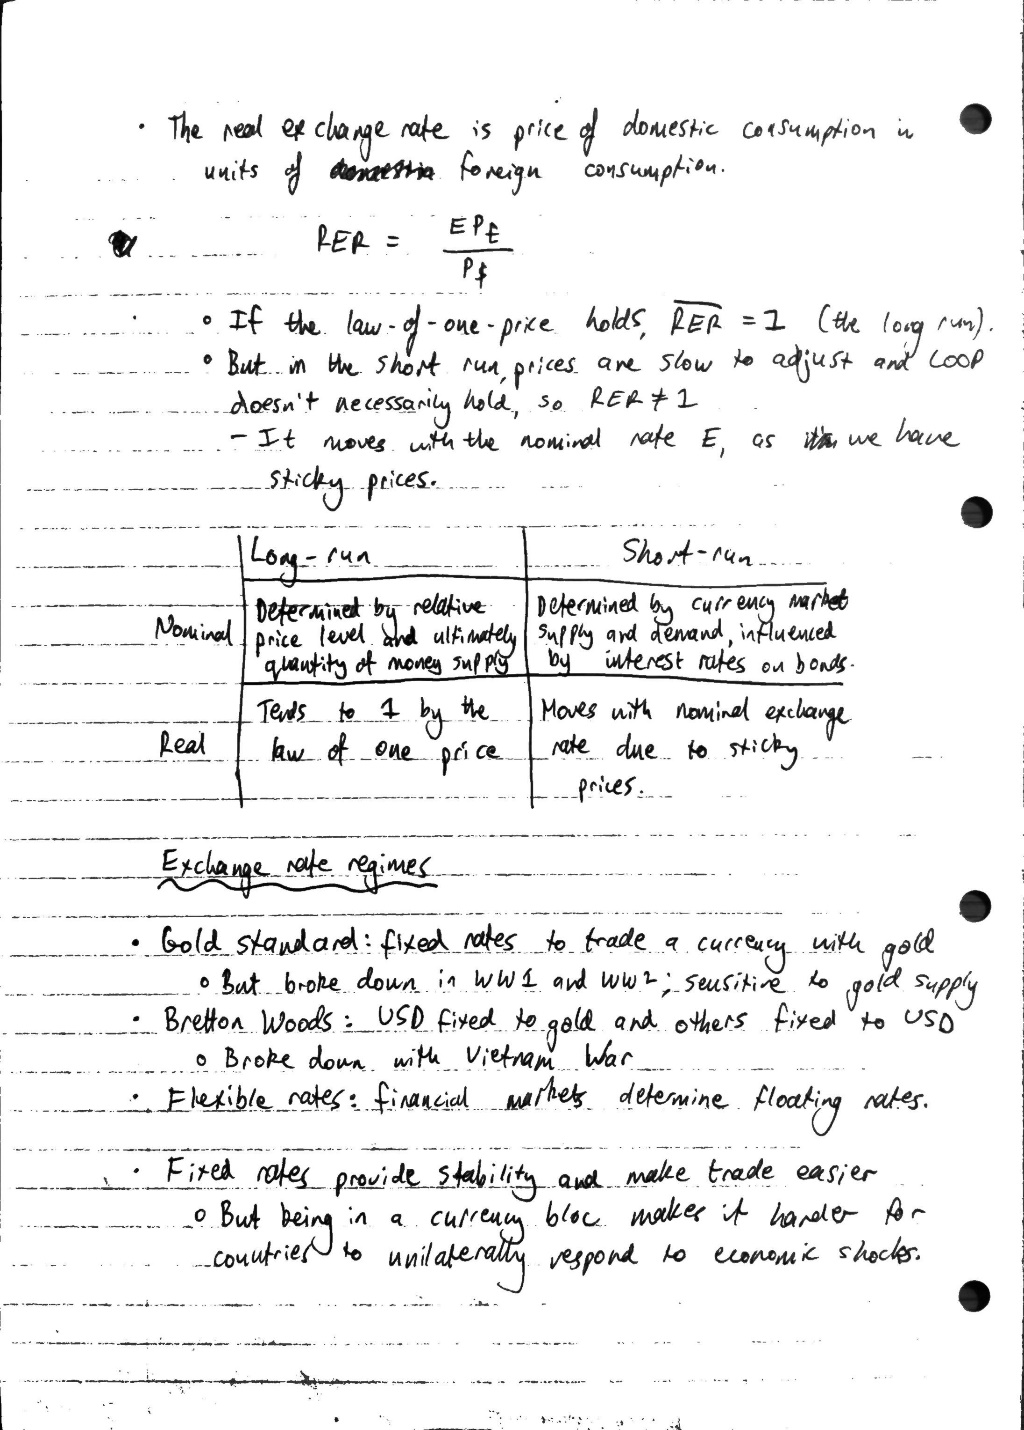 • The real exchange rate is price of domestic consumption in
units of foreign consumption.
RER = E P£ / P$
◦ If the law-of-one-price holds, R̅E̅R̅ = 1 (the long run).
◦ But in the short run, prices are slow to adjust and LOOP
doesn't necessarily hold, so RER ≠ 1
– It moves with the nominal rate E, as we have
sticky prices.
Long-run Short-run
Nominal
Determined by relative
price level and ultimately
quantity of money supply
Determined by currency market
supply and demand, influenced
by interest rates on bonds.
Real
Tends to 1 by the
law of one price
Moves with nominal exchange
rate due to sticky
prices.
Exchange rate regimes
• Gold standard: fixed rates to trade a currency with gold
◦ But broke down in WW1 and WW2; sensitive to gold supply
• Bretton Woods: USD fixed to gold and others fixed to USD
◦ Broke down with Vietnam War
• Flexible rates: financial markets determine floating rates.
• Fixed rates provide stability and make trade easier
◦ But being in a currency bloc makes it harder for
countries to unilaterally respond to economic shocks.